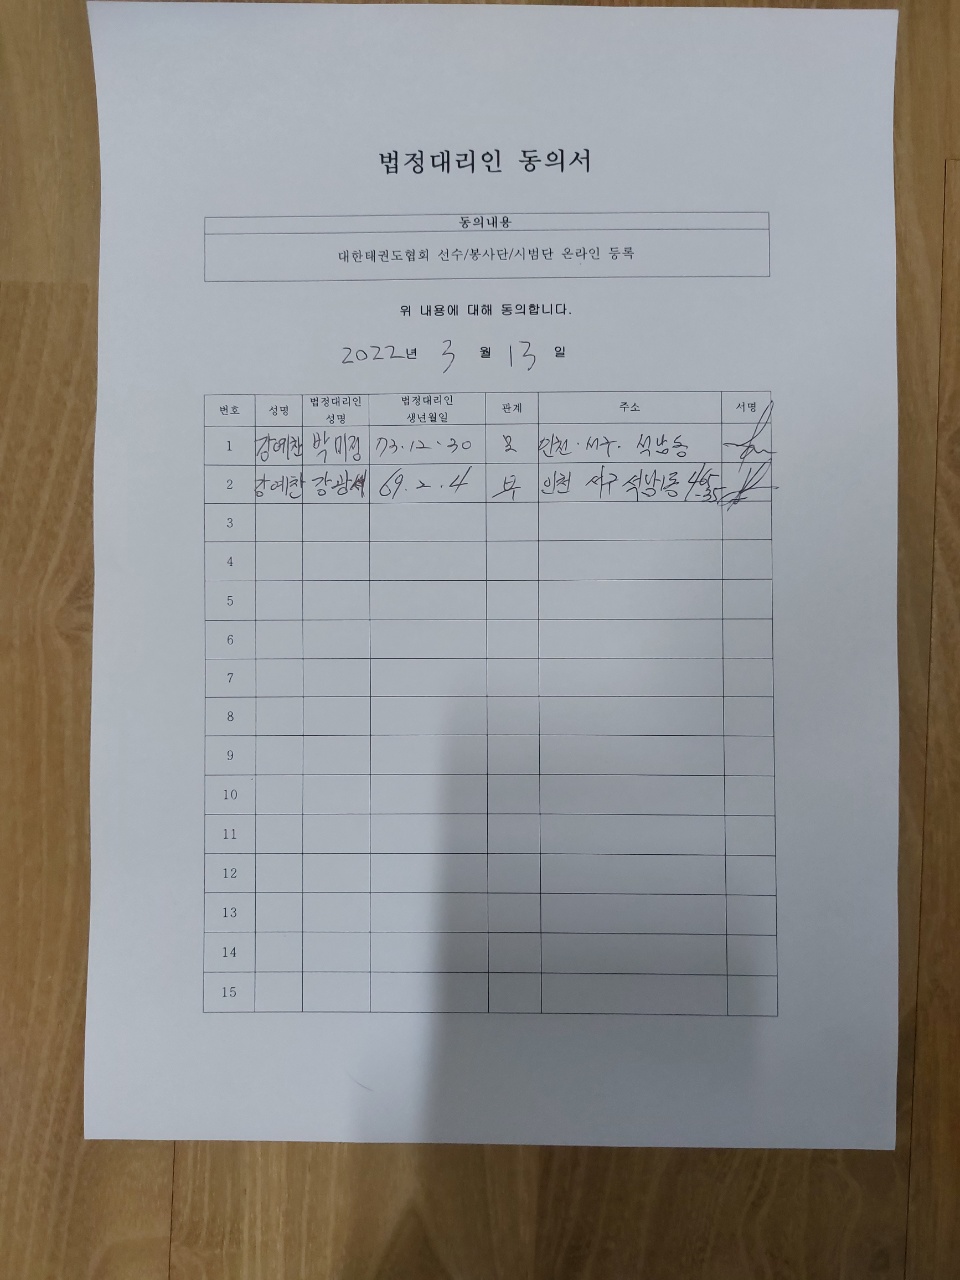 법정대리인 동의서
동의내용
대한태권도협회 선수/봉사단/시범단 온라인 등록
위 내용에 대해 동의합니다.
2022년 3 월 13 일
번호 성명 법정대리인 성명 법정대리인 생년월일 관계 주소 서명
1 강예찬 박미정 73.12.30 모 인천. 서구. 석남동
2 강예찬 강광세 69.2.4 부 인천 서구 석남1동 465-35
3
4
5
6
7
8
9
10
11
12
13
14
15